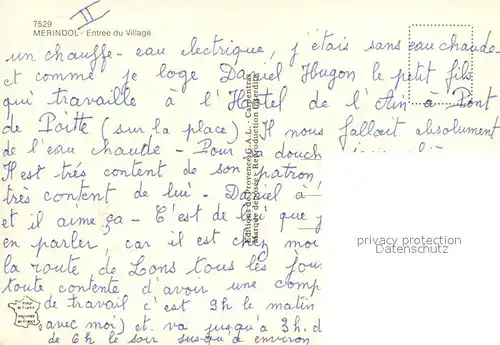 II
7529
MERINDOL - Entrée du Village
un chauffe-eau electrique, j'étais sans eau chaude-
et comme je loge Daniel Hugon le petit fils
qui travaille à l'Hôtel de l'Ain a Pont
de Poitte (sur la place) Il nous fallait absolument
de l'eau chaude - Pour sa douch
Il est trés content de son patron
très content de lui - Daniel a
et il aime ça - C'est de lui que
en parler, car il est chez moi
la route de Lons tous les jou
toute contente d'avoir une comp
de travail c'est 9h le matin
avec moi) et va jusqu'à 3h. d
de 6h le soir jusqu'à environ
Editions de Provence G.A.L. - Carpentras
Marque déposée - Reproduction interdite
privacy protection
Datenschutz